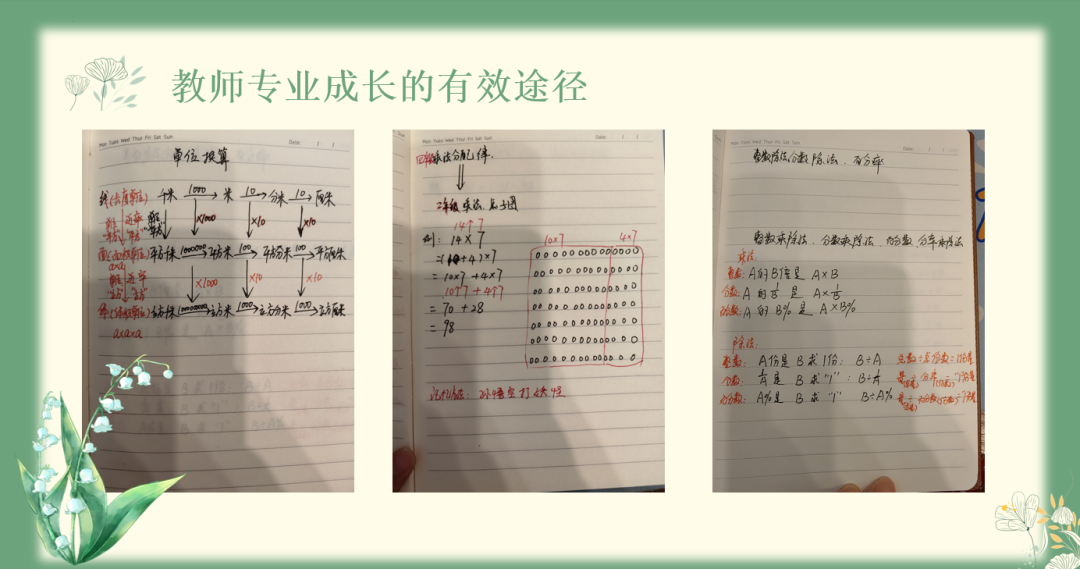 教师专业成长的有效途径
Mon Tues Wed Thur Fri Sat Sun
Date: / /
单位换算
线(长度单位) 千米 1000 米 10 分米 10 厘米
×1000 ×10 ×10
平方千米 1000000 平方米 100 平方分米 100 平方厘米
a×a
×1000 ×10 ×10
立方米 1000 立方分米 1000 立方厘米
a×a×a
Mon Tues Wed Thur Fri Sat Sun
Date: / /
乘法分配律.
二年级 乘法 点子图
14个7
例: 14×7
=(10+4)×7
=10×7+4×7
10个7+4个7
=70+28
=98
10×7 4×7
记忆方法: 孙悟空打妖怪
Mon Tues Wed Thur Fri Sat Sun
Date: / /
整数除法分数除法、百分率
整数乘除法、分数乘除法、百分数、分率乘除法
乘法:
整数: A的B倍是 A×B
分数: A的1/B是 A×1/B
百分数: A的B% 是 A×B%
除法:
整数: A份是B求1份: B÷A
分数: 1/A是B求"1": B÷1/A
百分数: A%是B求"1" B÷A%